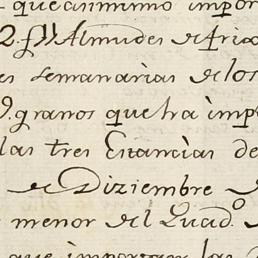 queasimismo impor
2. ffs Almudes de frixo
es semanarias de los
9. granos que ha impo
las tres Estancias de
de Diziembre
menor del Quad.º
que importan las